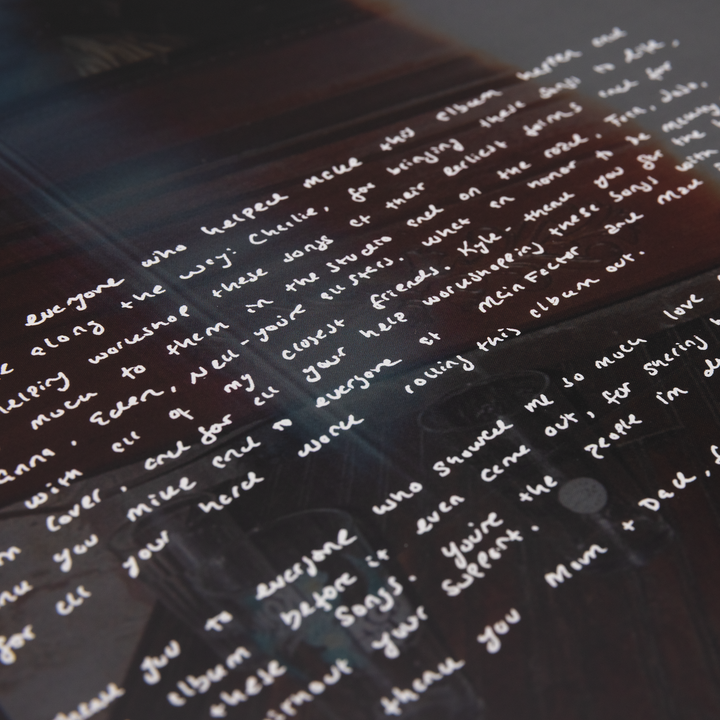 everyone who helped make this album happen and
along the way: Charlie, for bringing these songs to life,
helping workshop these songs at their earliest forms and for
much to them in the studio and on the road. Fren, Jake,
anna, Eden, Nell - you're all stars. what an honor to be making
with all of my closest friends. Kyle - thank you for the
cover, and for all your help workshopping these songs with
you mike and to everyone at Mainfactor and Mad
for all your hard work rolling this album out.
thank you to everyone who showed me so much love
album before it even came out, for sharing
these songs. you're the people i'm
without your support.
thank you Mom + Dad,